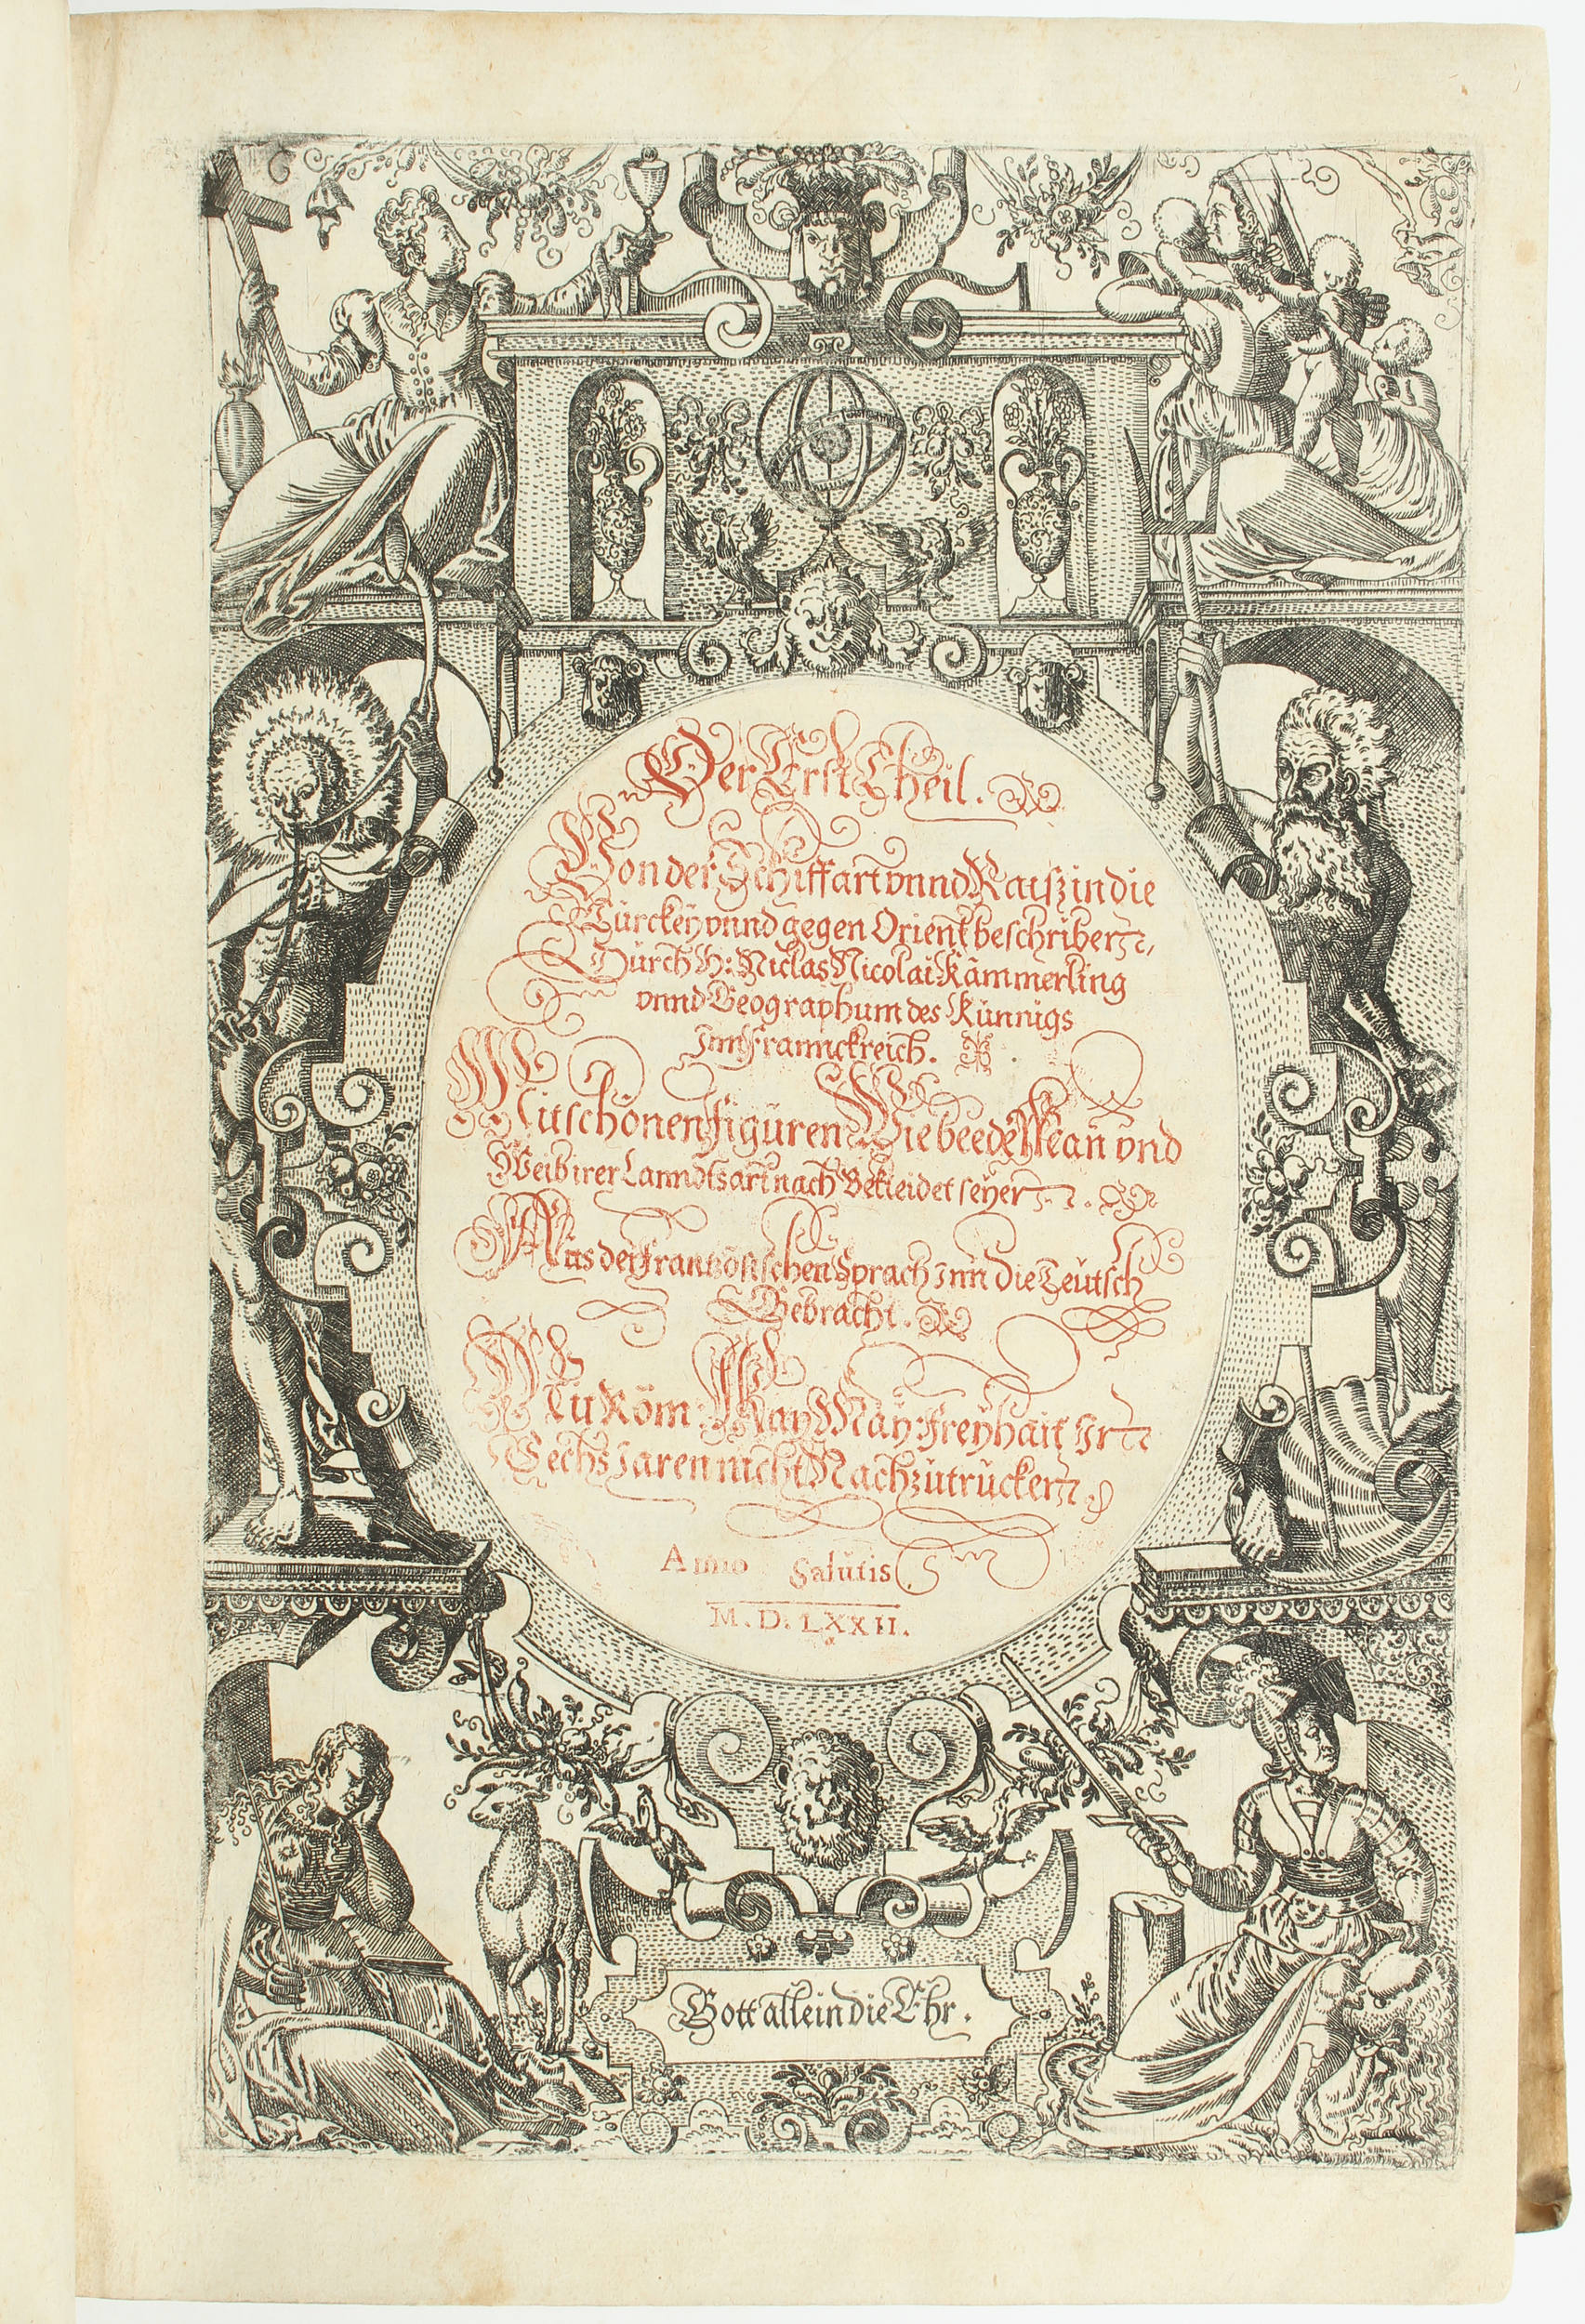 Der Erst Theil.
Von der Schiffart vnnd Raisz in die
Türckeÿ vnnd gegen Orient beschriben,
Durch H: Niclas Nicolai Kämmerling
vnnd Geographum des Künnigs
Inn Frannckreich.
Mit schönen Figuren Wie beede Man vnd
Weib irer Lanndsart nach Bekleidet seyen.
Aus der Frantzösischen Sprach Inn die Teutsch
Gebracht.
Mit Röm: Kay: May: Freyhait In
Sechs Jaren nicht Nachzutrucken.
Anno Salutis
M. D. LXXII.
Gott allein die Ehr.